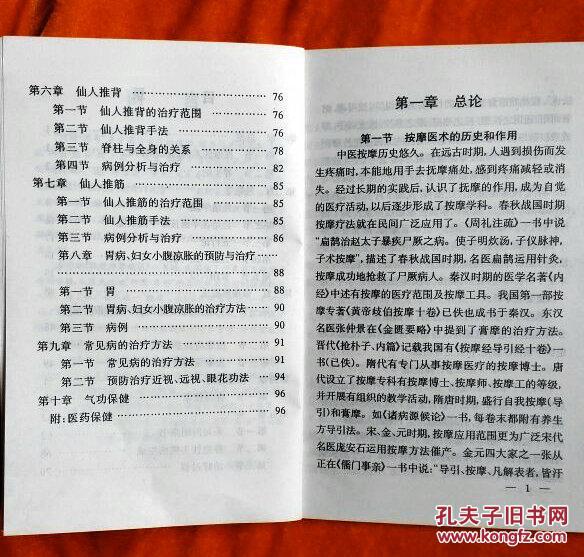 第六章 仙人推背 …………………… 76
第一节 仙人推背的治疗范围 …………… 76
第二节 仙人推背手法 …………………… 76
第三节 脊柱与全身的关系 ……………… 78
第四节 病例分析与治疗 ………………… 82
第七章 仙人推筋 …………………… 85
第一节 仙人推筋的治疗范围 …………… 85
第二节 仙人推筋手法 …………………… 85
第三节 病例分析与治疗 ………………… 86
第八章 胃病、妇女小腹凉胀的预防与治疗 ……
…………………… 88
第一节 胃 …………………… 88
第二节 胃病、妇女小腹凉胀的治疗方法 … 90
第三节 病例 …………………… 90
第九章 常见病的治疗方法 …………… 91
第一节 常见病的治疗方法 …………… 91
第二节 预防治疗近视、远视、眼花功法 … 94
第十章 气功保健 …………………… 96
附:医药保健 …………………… 96
第一章 总论
第一节 按摩医术的历史和作用
中医按摩历史悠久。在远古时期,人遇到损伤而发
生疼痛时,本能地用手去抚摩痛处,感到疼痛减轻或消
失。经过长期的实践后,认识了抚摩的作用,成为自觉
的医疗活动,以后逐步形成了按摩学科。春秋战国时期
按摩疗法就在民间广泛应用了。《周礼注疏》一书中说
"扁鹊治赵太子暴疾尸厥之病。使子明炊汤,子仪脉神,
子术按摩",描述了春秋战国时期,名医扁鹊运用针灸、
按摩成功地抢救了尸厥病人。秦汉时期的医学名著《内
经》中述有按摩的医疗范围及按摩工具。我国第一部按
摩专著《黄帝歧伯按摩十卷》已佚也成书于秦汉。东汉
名医张仲景在《金匮要略》中提到了膏摩的治疗方法。
晋代《抢朴子、内篇》记载我国有《按摩经导引经十卷》一
书(已佚)。隋代有专门从事按摩医疗的按摩博士。唐
代设立了按摩专科有按摩博士、按摩师、按摩工的等级,
并开展有组织的教学活动,隋唐时期,盛行自我按摩(导
引)和膏摩。如《诸病源候论》一书,每卷末都附有养生
方导引法。宋、金、元时期,按摩应用范围更为广泛宋代
名医庞安石运用按摩方法催产。金元四大家之一张从
正在《儒门事亲》一书中说:"导引、按摩、凡解表者,皆汗
— 1 —
孔夫子旧书网